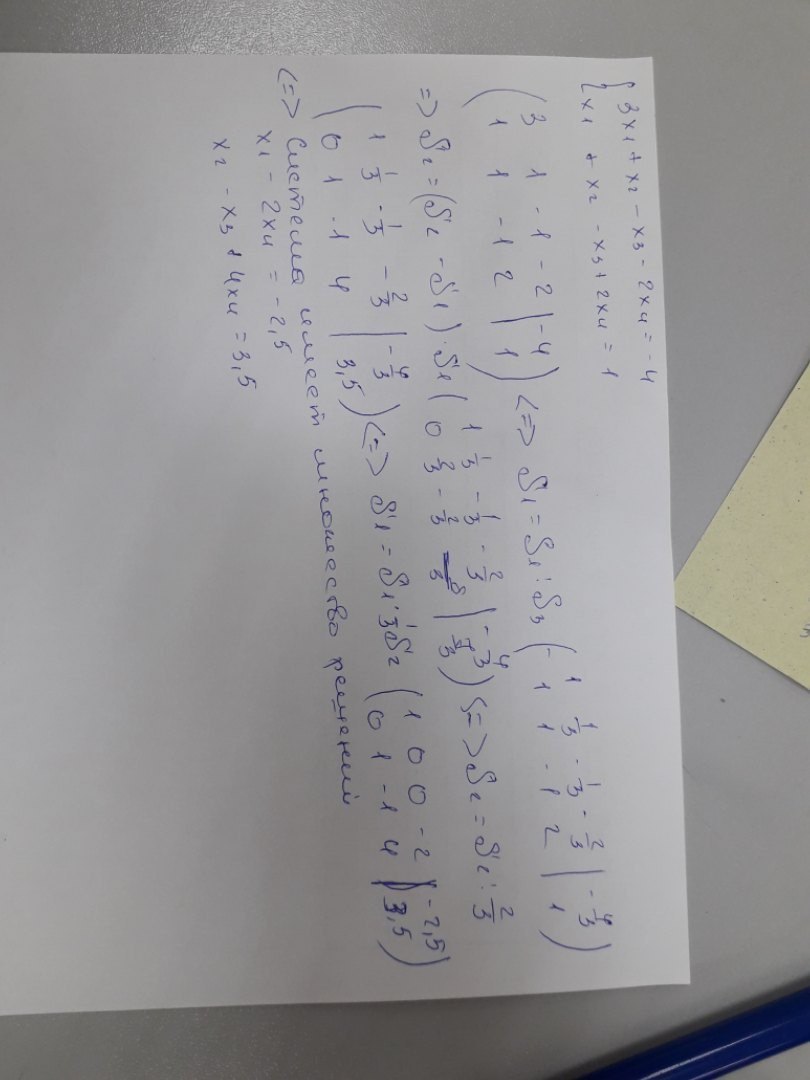 { 3x1 + x2 - x3 - 2x4 = -4
x1 + x2 - x3 + 2x4 = 1
( 3 1 -1 -2 | -4
1 1 -1 2 | 1 ) <=> S1 = S1 : S3 ( 1 1/3 -1/3 -2/3 | -4/3
1 1 -1 2 | 1 )
=> S2 = (S2 - S1) · S1 ( 1 1/3 -1/3 -2/3 | -4/3
0 2/3 -2/3 8/3 | 7/3 ) <=> S2 = S2 : 2/3
( 1 1/3 -1/3 -2/3 | -4/3
0 1 -1 4 | 3,5 ) <=> S1 = S1 · 1/3 S2 ( 1 0 0 -2 | -2,5
0 1 -1 4 | 3,5 )
<=> Система имеет множество решений
x1 - 2x4 = -2,5
x2 - x3 + 4x4 = 3,5